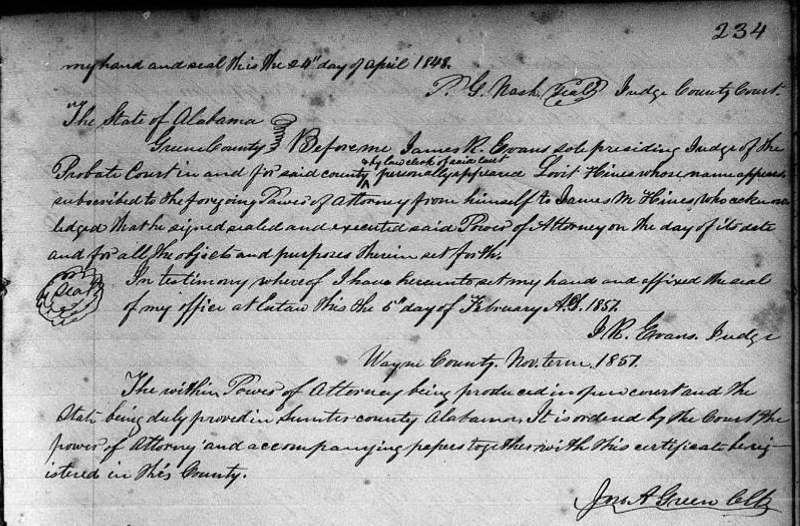 234
my hand and seal this the 24" day of April 1848.
P. G. Nash (Seal) Judge County Court
The State of Alabama
Greene County } Before me James R. Evans sole presiding Judge of the
& by law clerk of said court
Probate Court in and for said county ^ personally appeared Lovit Hines whose name appears
subscribed to the foregoing Power of Attorney from himself to James M Hines who acknow
ledged that he signed sealed and executed said Power of Attorney on the day of its date
and for all the objects and purposes therein set forth.
In testimony whereof I have hereunto set my hand and affixed the seal
Seal
of my office at Eutaw this the 5" day of February A.D. 1851.
J. R. Evans. Judge
Wayne County. Nov. term, 1851.
The within Power of Attorney being produced in open court and the
State being duly proved in Sumter county Alabama. It is ordered by the Court the
power of Attorney and accompanying papers together with this certificate be reg-
istered in this County.
Jno A Green Clk